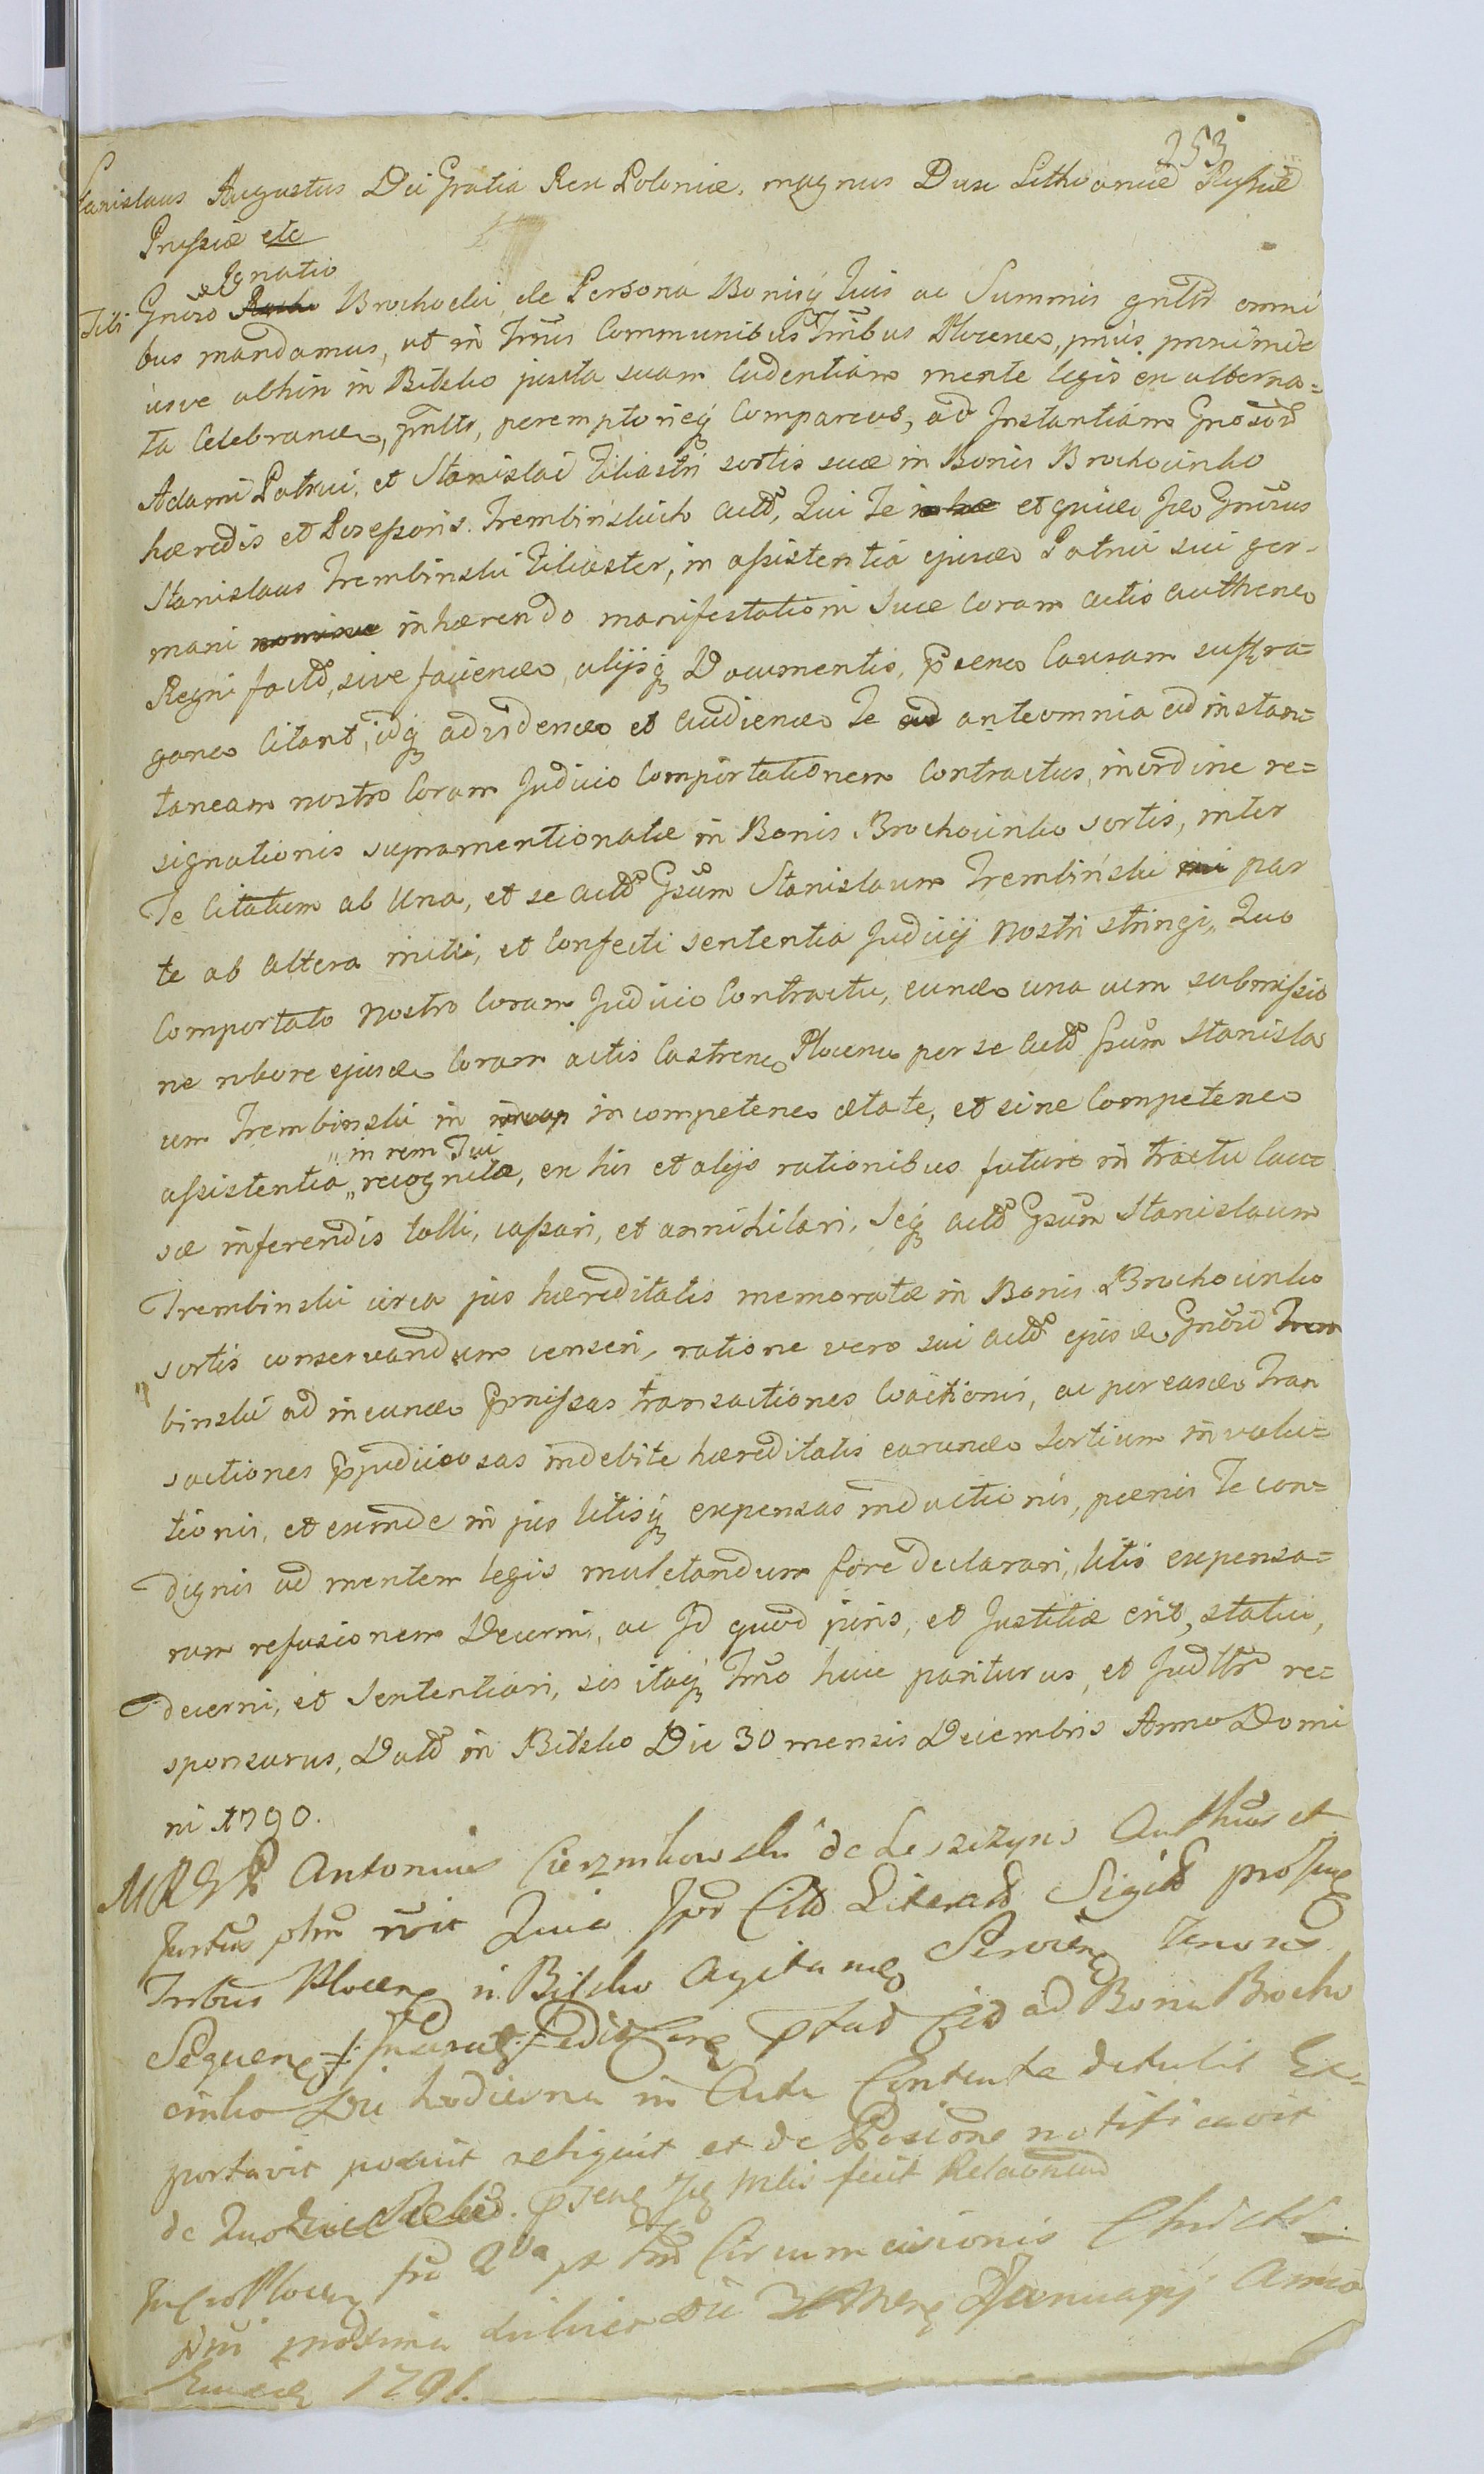 253
Stanislaus Augustus Dei Gratia Rex Poloniæ, magnus Dux Lithvaniæ Russiæ
Prussiæ etc
Ignatio
Tibi Gnoso Brochocki, de Persona Bonisq Tuis ac Summis gnltr omni
bus mandamus, ut in Tmis Communibus Tmibus Plocens, prius proxime
usve abhin in Bilsko juxta suam Cadentiam mente legis ex alterna=
ta Celebrand, pnltr, peremptorieq Compareas, ad Instantiam Gnosor
Adami Patrui, et Stanislai Filiastri sortis suæ in Bonis Brochocinko
hæredis et Possessoris Trembinskich Act, Qui Te et quid Ips Gnosus
Stanislaus Trembinski Filiaster, in assistentia ejusd Patrui sui ger=
mani nomine inhærendo manifestationi suæ Coram actis authens
Regni fact, sive faciend, alijsq Documentis, psens Causam suffra=
gans Citant, idq ad videnda et audiend Te ad ante omnia ad instan=
taneam nostro Coram Judicio Comportationem Contractus, in ordine re=
signationis supramentionatæ in Bonis Brochocinko sortis, inter
Te Citatum ab Una, et se Act Gsum Stanislaum Trembinski par
te ab altera initi, et Confecti sententia Judicij nostri stringi, Quo
Comportato nostro Coram Judicio Contractu, eund una cum submissio
ne robore ejusd Coram actis Castrens Plocens per se Act Gsum Stanisla
um Trembinski in incompetens ætate, et sine Competens
in rem Tui
assistentia recognitæ, ex his et alijs rationibus futuro in tractu Cau=
sæ inferendis tolli, cassari, et annihilari, Seq act Gsum Stanislaum
Trembinski circa jus hæreditatis memoratæ in Bonis Brochocinko
sortis conservandum censeri, ratione vero sui act ejusd Gnosi Trem
binski ad ineund pmissas transactiones Coactionis, ac per easd Tran
sactiones pjudiciosas indebite hæreditatis earund sortium involu=
tionis, et exinde in jus litisq expensas inductionis, pænis Te con=
dignis ad mentem legis mulctandum fore declarari, litis expensa=
rum refusionem Decerni, ac Id quod juris, et Justitiæ erit, statui,
decerni, et sententiari, sis itaq Tmo huic pariturus, et Judltr re=
sponsurus, Dat in Bilsko Die 30 mensis Decembris Anno Domi
ni 1790.
Antonius Cierznikowski de Leszczyno Authus et
Juratus pltr rvit Quia Ipse Citt Literat Sigitt pro Jur
Tribus Plocens in Bilsko Agitand Servien Tenoris
Sequens ad Bona Brocho
cinko Die hodierna in Acta Contenta detulit Ex=
portavit posuit reliquit et de Posicione notificavit
de Quo psens Ips Mlis fecit Relationem
fra 2da pt fm Circumcisionis Christi
Dni proxima Die 3 Mens Januarij Anno
1791.